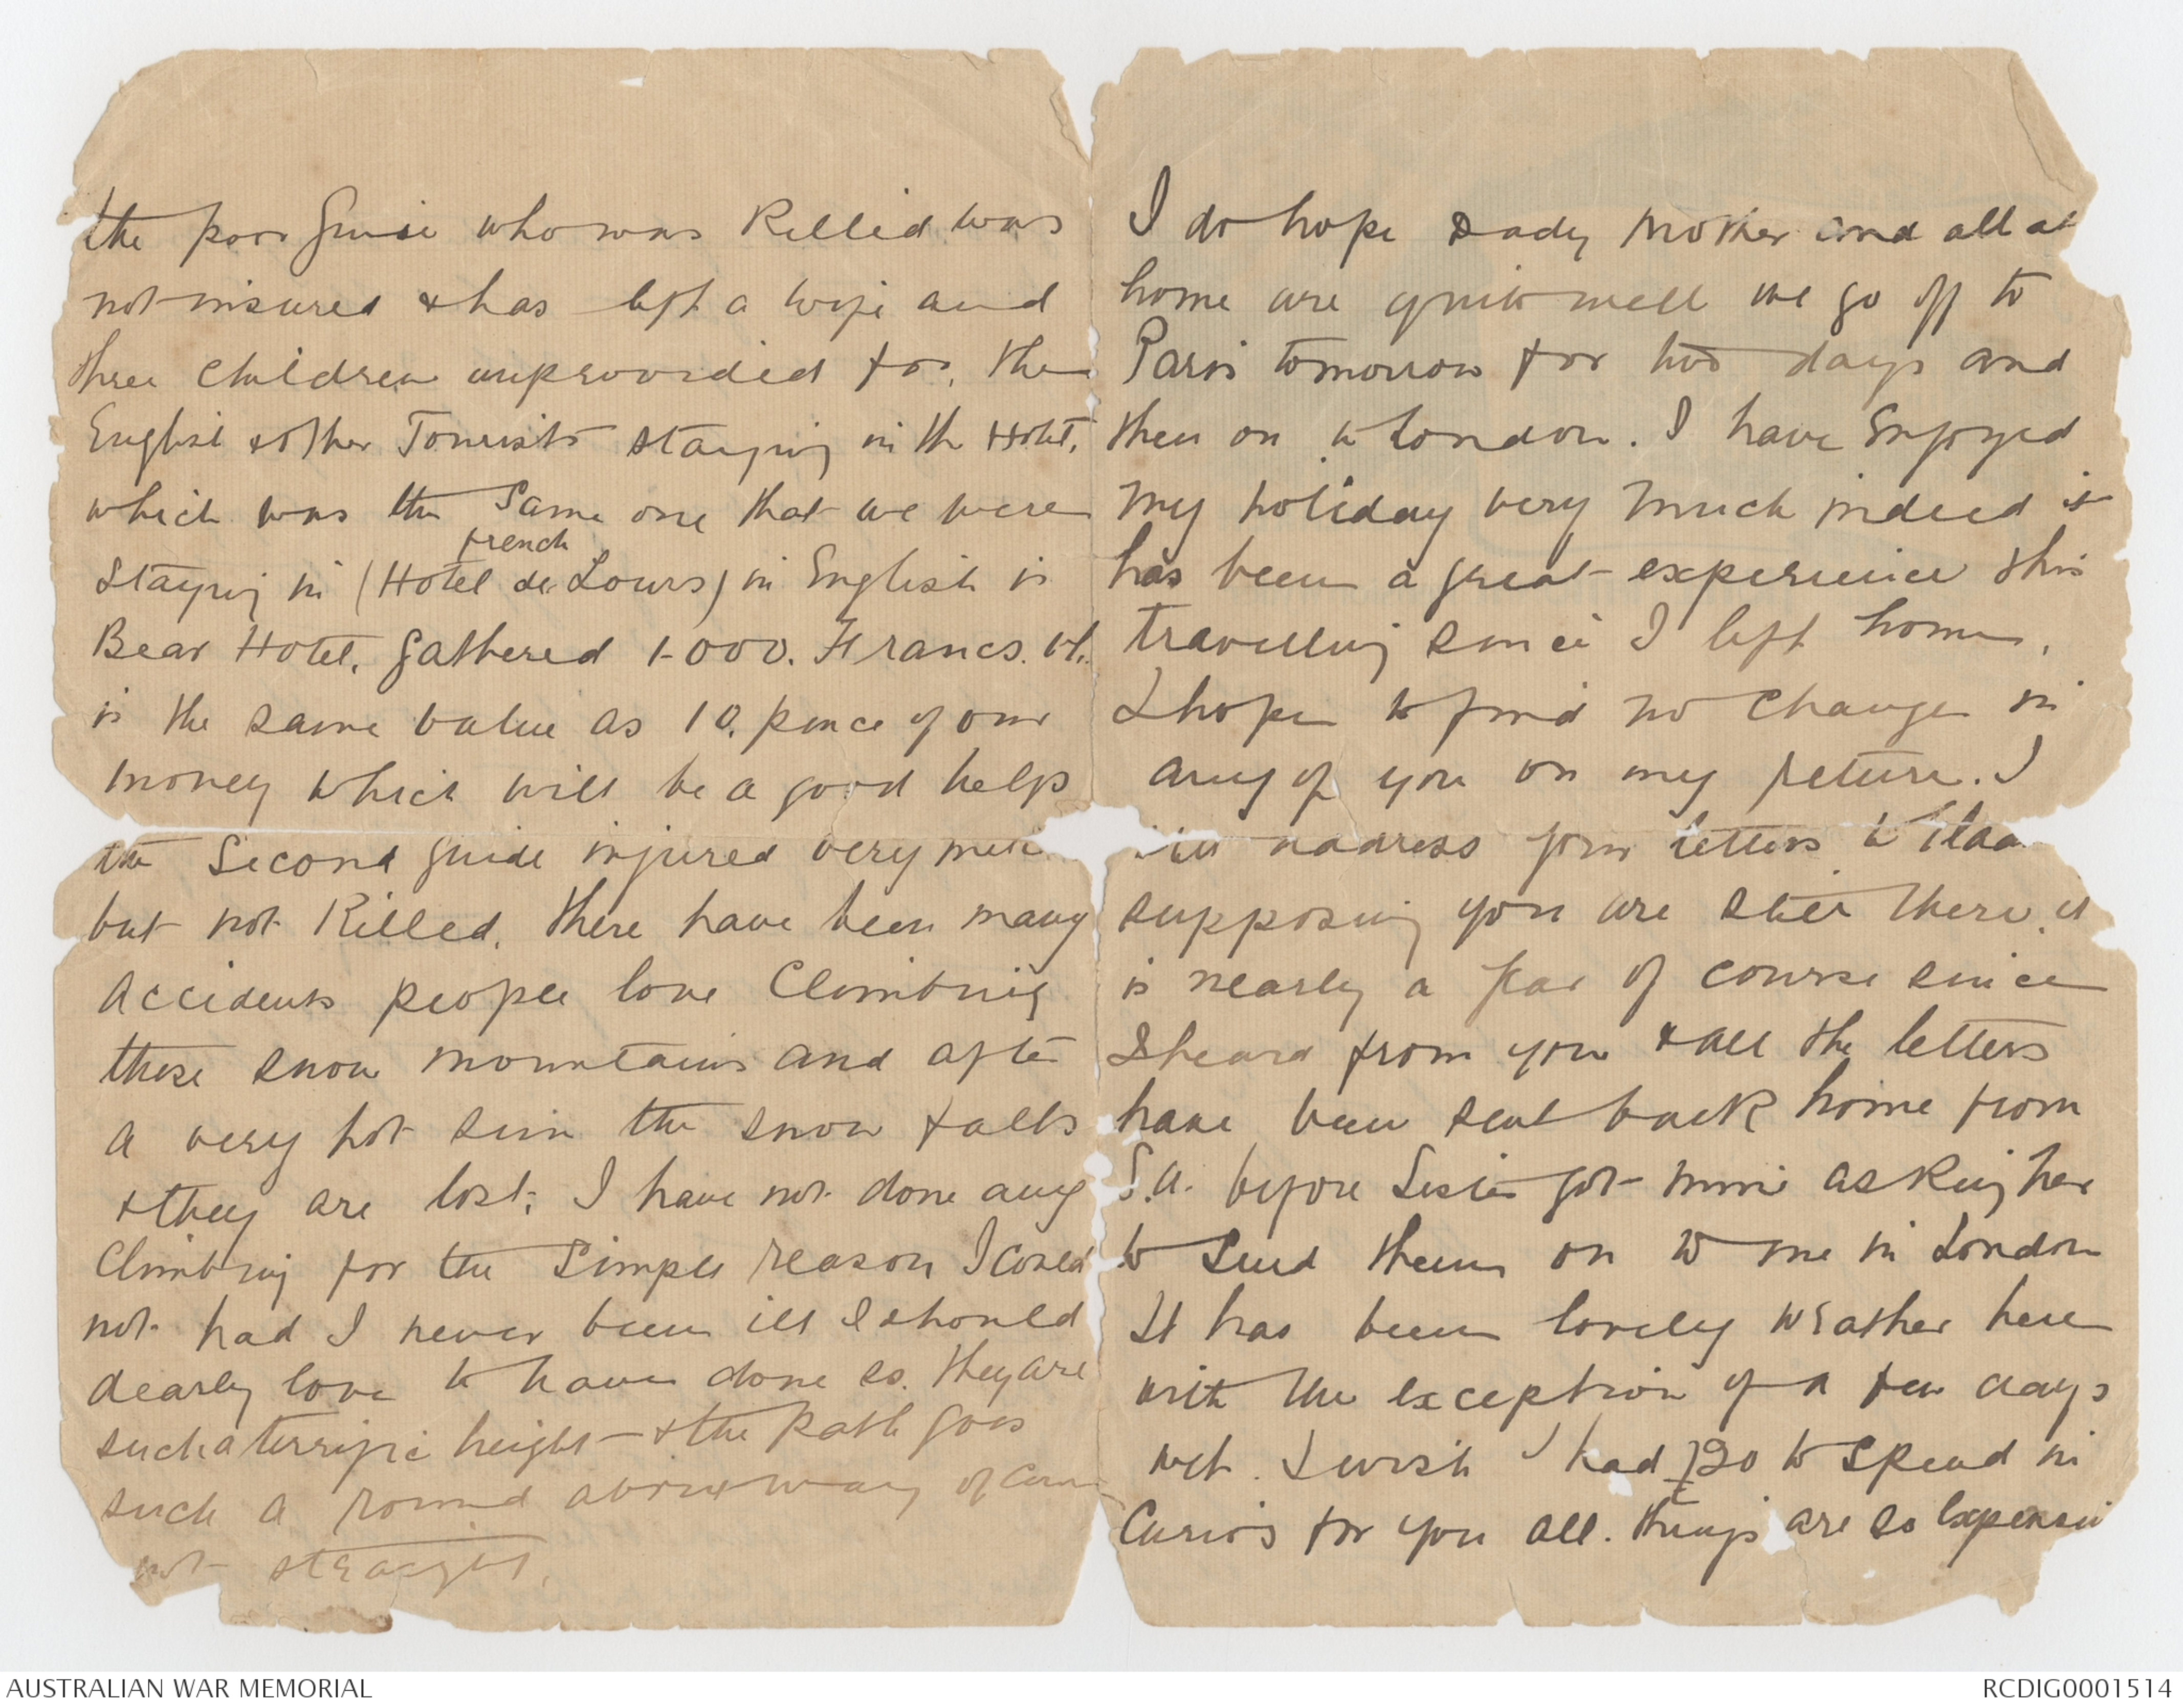 the poor Guide who was Killed was
not insured & has left a wife and
three children unprovided for, the
English & other Tourists staying in the Hotel,
which was the same one that we were
french
staying in (Hotel de Lours) in English is
Bear Hotel, gathered 1-000. Francs. wh.
is the same value as 10. pence of our
money which will be a good help
the Second guide injured very much
but not Killed. there have been many
accidents people love Climbing
these snow mountains and after
a very hot sun the snow falls
& they are lost; I have not done any
Climbing for the simple reason I could
not had I never been ill I should
dearly love to have done so. they are
such a terrific height & the path goes
such a round about way of
not straight.
I do hope Dady Mother and all at
home are quite well we go off to
Paris tomorrow for two days and
then on to London. I have Enjoyed
my holiday very much indeed it
has been a great experience this
travelling since I left home,
I hope to find no change in
any of you on my return. I
address your letters to
supposing you are still there, it
is nearly a year of course since
I heard from you & all the letters
have been sent back home from
S.A. before Sister got mine asking her
to send them on to me in London
It has been lovely weather here
with the exception of a few days
wet. I wish I had £20 to spend in
Curios for you all. things are so Expensive
AUSTRALIAN WAR MEMORIAL
RCDIG0001514